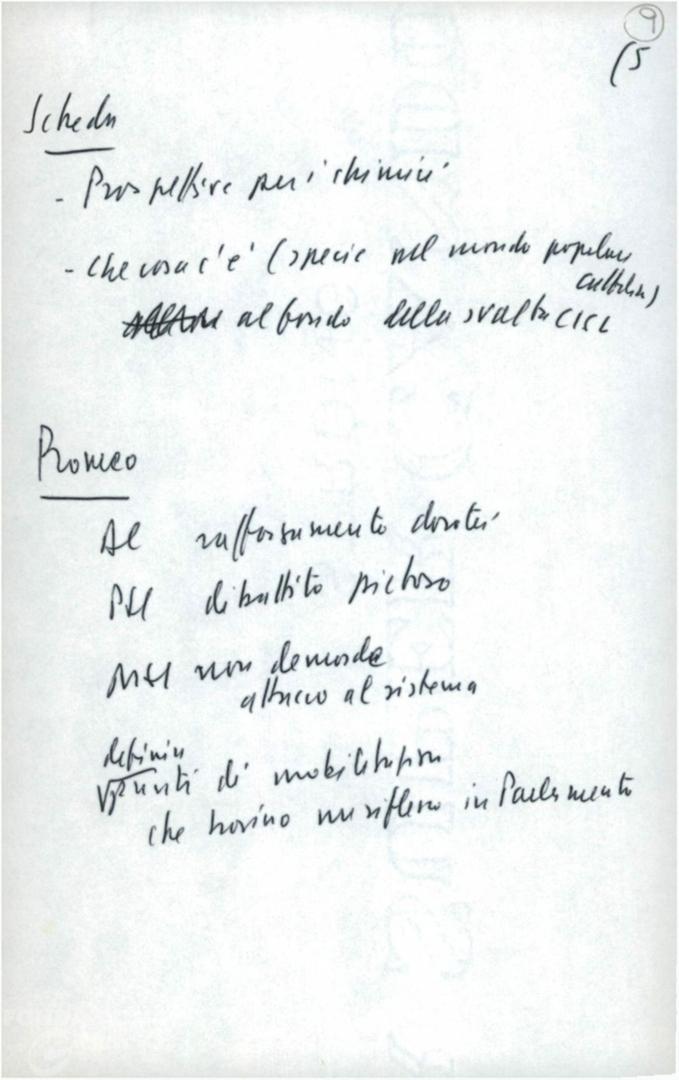 9
(5
Scheda
- Prospettive per i chimici
- che cosa c'è (specie nel mondo popolare
cattolico)
al fondo della svolta CISL
Romeo
rafforzamento dorotei
PSI dibattito pietoso
MSI non demorde
attacco al sistema
definire
punti di mobilitazione
che trovino un riflesso in Parlamento